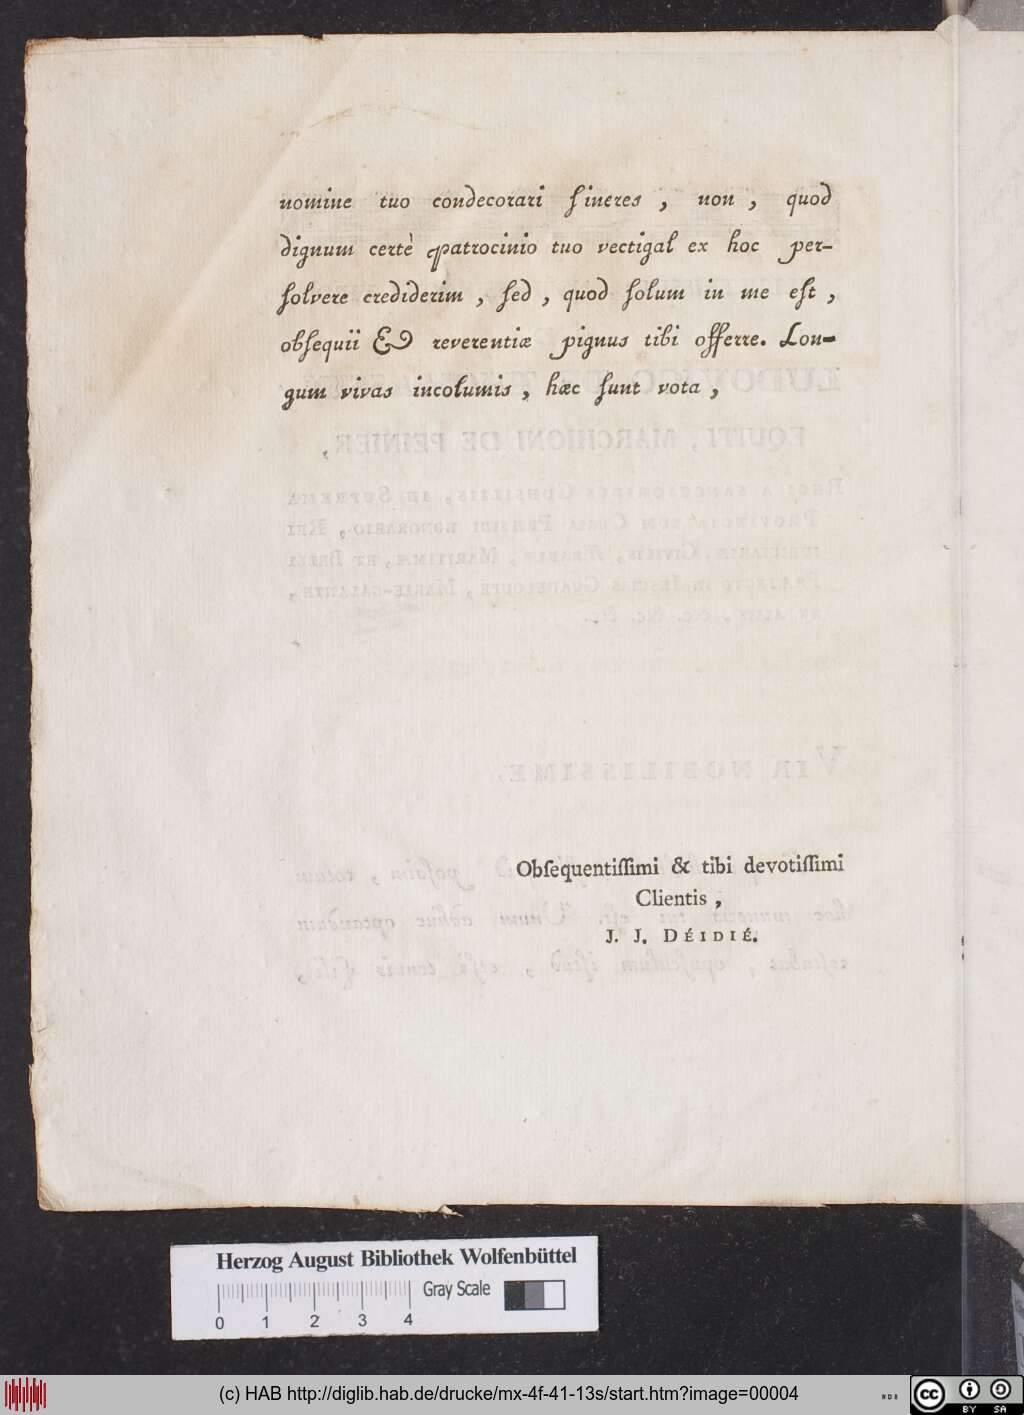 nomine tuo condecorari ſineres , non , quod
dignum certè patrocinio tuo vectigal ex hoc per-
ſolvere crediderim , ſed , quod ſolum in me eſt ,
obſequii & reverentiæ pignus tibi offerre. Lon-
gum vivas incolumis , hæc ſunt vota ,
Obſequentiſſimi & tibi devotiſſimi
Clientis ,
J. J. DÉIDIÉ.
Herzog August Bibliothek Wolfenbüttel
Gray Scale
0 1 2 3 4
(c) HAB http://diglib.hab.de/drucke/mx-4f-41-13s/start.htm?image=00004
WDB
cc BY SA